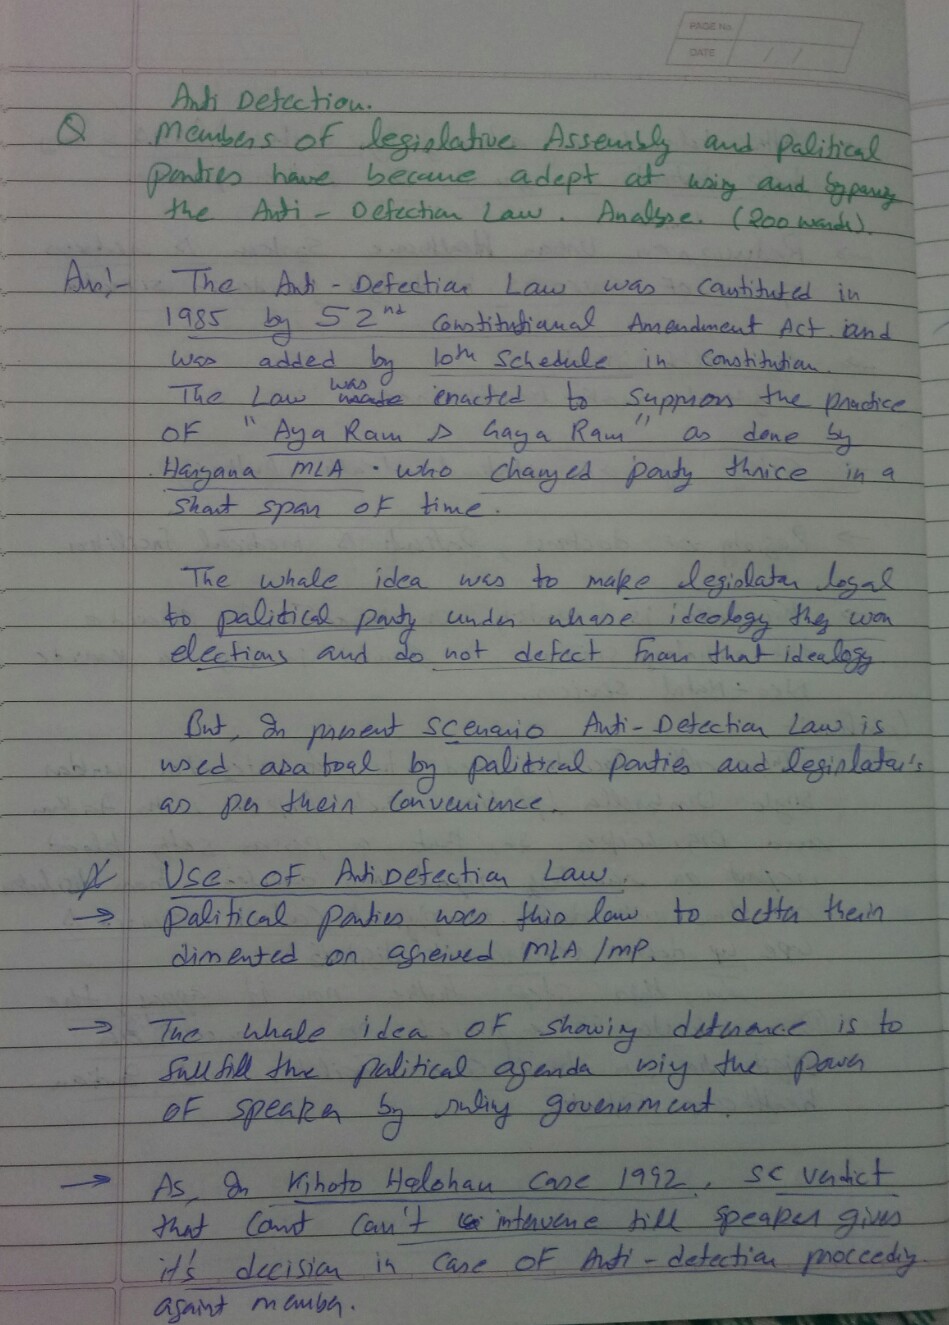 PAGE No
DATE / /
Anti Defection.
Q Members of legislative Assembly and political
parties have became adept at using and bypassing
the Anti - Defection Law. Analyse. (200 words).
Ans:- The Anti - Defection Law was constituted in
1985 by 52nd Constitutional Amendment Act and
was added by 10th Schedule in Constitution.
The Law was enacted to suppress the practice
of "Aya Ram & Gaya Ram" as done by
Haryana MLA. who changed party thrice in a
short span of time.
The whole idea was to make legislator loyal
to political party under whose ideology they won
elections and do not defect from that idealogy
But, In present scenario Anti-Defection Law is
used as a tool by political parties and legislator's
as per their convenience.
Use of Anti Defection Law
→ Political parties uses this law to detter their
dimented or agreived MLA/MP.
→ The whole idea of showing deterence is to
fullfill the political agenda using the power
of speaker by ruling government.
→ As, In Kihoto Holohan Case 1992, SC verdict
that Court can't intervene till speaker gives
it's decision in case of Anti-defection proceeding
againt member.